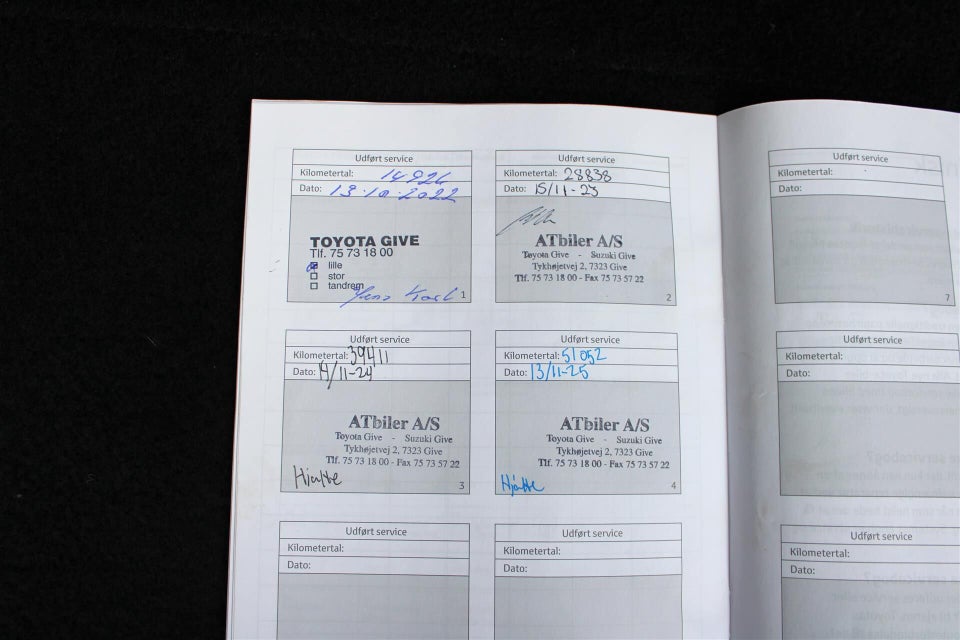 Udført service
Kilometertal: 14926
Dato: 13.10.2022
TOYOTA GIVE
Tlf. 75 73 18 00
lille
stor
tandrem
Jens Karl
1
Udført service
Kilometertal: 28838
Dato: 15/11-23
ATbiler A/S
Toyota Give - Suzuki Give
Tykhøjetvej 2, 7323 Give
Tlf. 75 73 18 00 - Fax 75 73 57 22
2
Udført service
Kilometertal: 39411
Dato: 14/11-24
ATbiler A/S
Toyota Give - Suzuki Give
Tykhøjetvej 2, 7323 Give
Tlf. 75 73 18 00 - Fax 75 73 57 22
3
Udført service
Kilometertal: 51052
Dato: 13/11-25
ATbiler A/S
Toyota Give - Suzuki Give
Tykhøjetvej 2, 7323 Give
Tlf. 75 73 18 00 - Fax 75 73 57 22
4
Udført service
Kilometertal:
Dato:
Udført service
Kilometertal:
Dato:
Udført service
Kilometertal:
Dato:
7
Udført service
Kilometertal:
Dato:
Udført service
Kilometertal:
Dato: